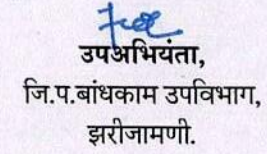 उपअभियंता,
जि.प.बांधकाम उपविभाग,
झरीजामणी.